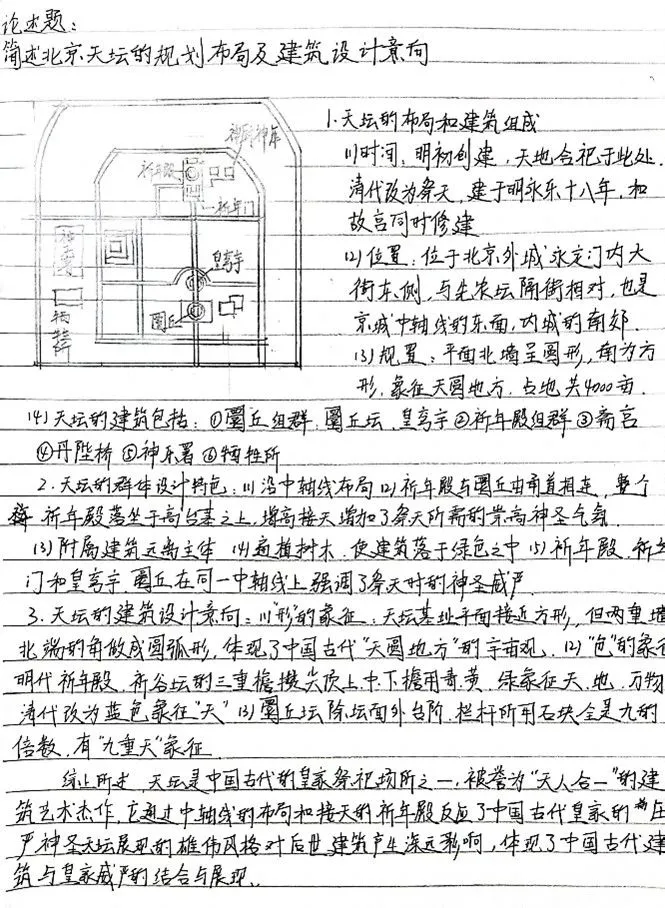 论述题:
简述北京天坛的规划布局及建筑设计意向
祈年殿
祈年门
皇穹宇
圜丘
牺牲所
1.天坛的布局和建筑组成
(1)时间:明初创建,天地合祀于此处.
清代改为祭天,建于明永乐十八年,和
故宫同时修建
(2)位置:位于北京外城永定门内大
街东侧,与先农坛隔街相对,也是
京城中轴线的东面,内城的南郊.
(3)规置:平面北墙呈圆形,南为方
形,象征天圆地方.占地共4000亩.
(4)天坛的建筑包括:①圜丘组群.圜丘坛、皇穹宇②祈年殿组群③斋宫
④丹陛桥⑤神乐署⑥牺牲所
2.天坛的群体设计特色:(1)沿中轴线布局(2)祈年殿与圜丘由甬道相连,整个
祈年殿落坐于高台基之上,增高接天增加了祭天所需的崇高神圣气氛.
(3)附属建筑远离主体 (4)遍植树木.使建筑落于绿色之中(5)祈年殿.祈年
门和皇穹宇 圜丘在同一中轴线上强调了祭天时的神圣威严.
3.天坛的建筑设计意向:(1)"形"的象征:天坛基址平面接近方形,但两重墙
北端的角做成圆弧形,体现了中国古代"天圆地方"的宇宙观.(2)"色"的象征
明代祈年殿.祈谷坛的三重檐攒尖顶上.中.下檐用青.黄.绿象征天.地.万物
清代改为蓝色象征"天"(3)圜丘坛除坛面外台阶.栏杆所用石块全是九的
倍数,有"九重天"象征.
综上所述,天坛是中国古代的皇家祭祀场所之一,被誉为"天人合一"的建
筑艺术杰作,它通过中轴线的布局和接天的祈年殿反应了中国古代皇家的庄
严神圣天坛展现的雄伟风格对后世建筑产生深远影响,体现了中国古代建
筑与皇家威严的结合与展现.